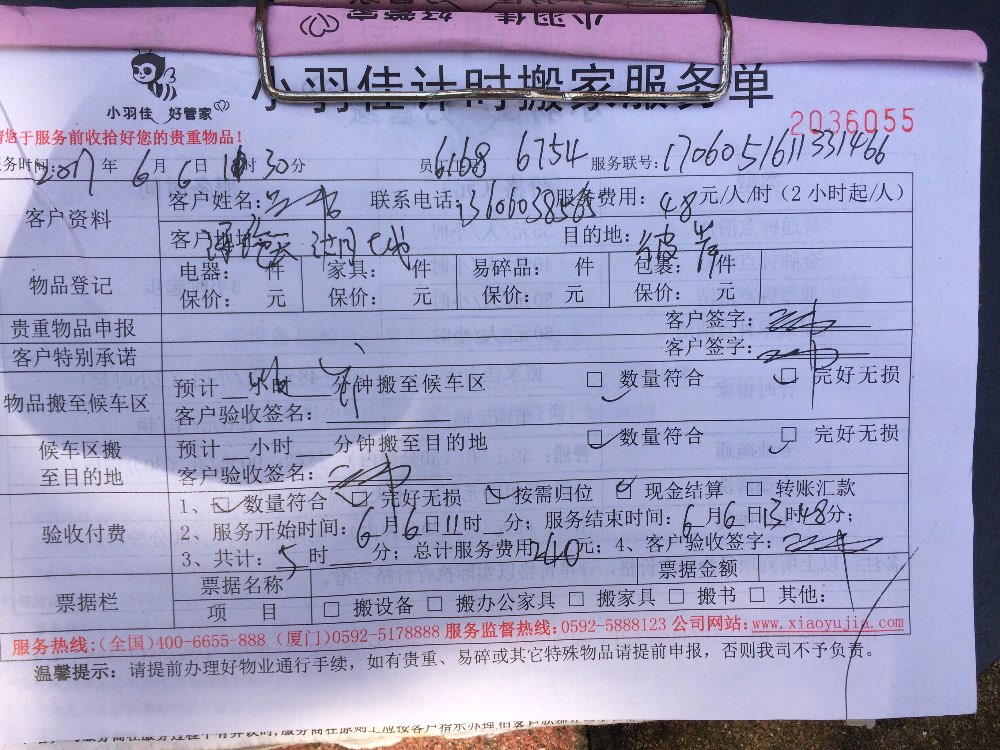 小羽佳 好管家
小羽佳 好管家
小羽佳计时搬家服务单
2036055
请您于服务前收拾好您的贵重物品！
服务时间: 2017年6月6日 时30分 员工工号: 6168 6754 服务联号: 1706051611331466
客户资料
客户姓名: 联系电话: 服务费用: 48元/人/时（2小时起/人）
客户地址: 目的地:
物品登记
电器： 件 家具： 件 易碎品： 件 包裹： 件
保价： 元 保价： 元 保价： 元 保价： 元
贵重物品申报 客户签字：
客户特别承诺 客户签字：
物品搬至候车区
预计 小时 分钟搬至候车区 □ 数量符合 □ 完好无损
客户验收签名：
候车区搬至目的地
预计 小时 分钟搬至目的地 □ 数量符合 □ 完好无损
客户验收签名：
验收付费
1、□ 数量符合 □ 完好无损 □ 按需归位 □ 现金结算 □ 转账汇款
2、服务开始时间：6月6日11时 分；服务结束时间：6月6日13时48分；
3、共计：5时 分；总计服务费用240元；4、客户验收签字：
票据栏
票据名称 票据金额
项 目 □ 搬设备 □ 搬办公家具 □ 搬家具 □ 搬书 □ 其他：
服务热线:(全国)400-6655-888 (厦门)0592-5178888 服务监督热线:0592-5888123 公司网站:www.xiaoyujia.com
温馨提示：请提前办理好物业通行手续，如有贵重、易碎或其它特殊物品请提前申报，否则我司不予负责。